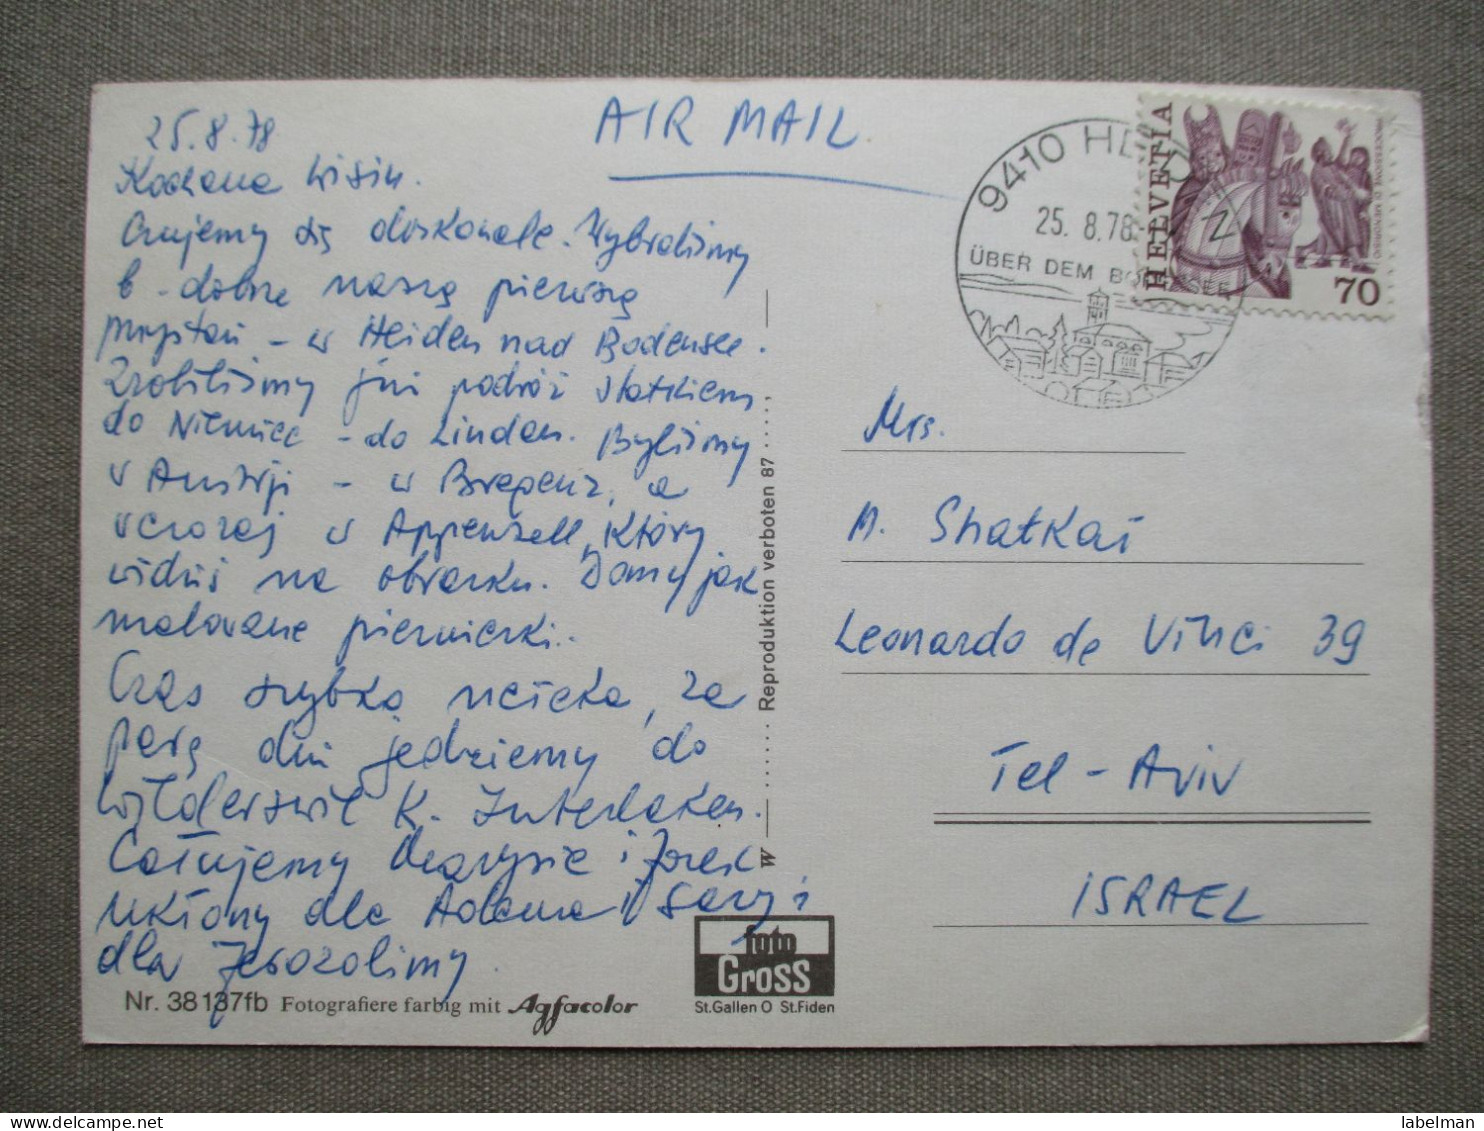 25.8.78
AIR MAIL
Kochana Wisiu.
Czujemy się doskonale. Wybraliśmy
b. dobrze naszą pierwszą
przystań - w Heiden nad Bodensee.
Zrobiliśmy już podróż statkiem
do Niemiec - do Lindau. Byliśmy
w Austrji - w Bregenz, a
wczoraj w Appenzell, który
widziś na obrazku. Domy jak
malowane pierniczki.
Czas szybko ucieka, za
parę dni jedziemy do
Wilderswil k. Interlaken.
Całujemy i
Ukłony dla Adama i Sary i
dla Jerozolimy
9410 HEIDEN
25.8.78
ÜBER DEM BODENSEE
HELVETIA
PROCESSIONE DI MENDRISIO
70
Mrs.
M. Shatkai
Leonardo de Vinci 39
Tel-Aviv
ISRAEL
W Reproduktion verboten 87
foto
Gross
St.Gallen O St.Fiden
Nr. 38137fb Fotografiere farbig mit Agfacolor
delcampe.net
labelman